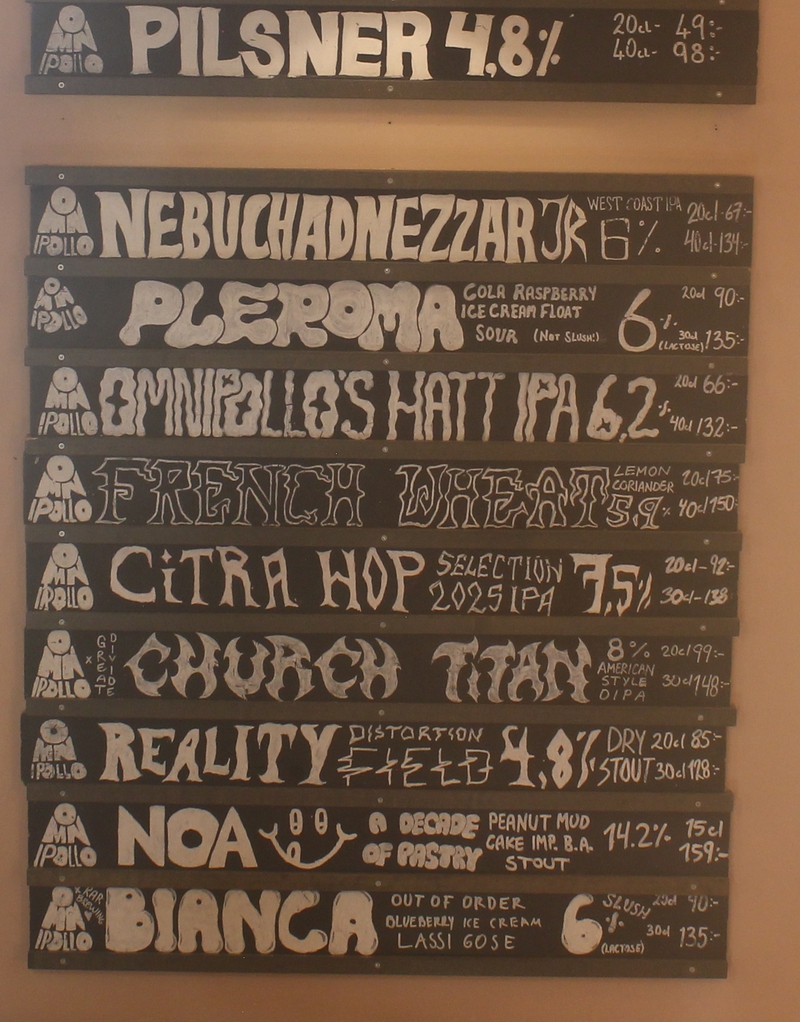 OMNIPOLLO PILSNER 4,8%
20cl- 49:-
40cl- 98:-
OMNIPOLLO NEBUCHADNEZZAR JR
WEST COAST IPA
6%
20cl-67:-
40cl-134:-
OMNIPOLLO PLEROMA
COLA RASPBERRY
ICE CREAM FLOAT
SOUR (NOT SLUSH!)
6%
(LACTOSE)
20cl 90:-
30cl 135:-
OMNIPOLLO OMNIPOLLO'S HATT IPA 6,2%
20cl 66:-
40cl/132:-
OMNIPOLLO FRENCH WHEAT
LEMON
CORIANDER
5.9%
20cl/75:-
40cl/150:-
OMNIPOLLO CiTRA HOP
SELECTION
2025 IPA
7,5%
20cl-92:-
30cl-138:-
OMNIPOLLO x GREAT DIVIDE CHURCH TITAN
8%
AMERICAN
STYLE
DIPA
20cl/99:-
30cl/148:-
OMNIPOLLO REALITY
DISTORTION
FIELD
4,8%
DRY
STOUT
20cl 85:-
30cl 128:-
OMNIPOLLO NOA
A DECADE
OF PASTRY
PEANUT MUD
CAKE IMP. B.A.
STOUT
14.2%
15cl
159:-
OMNIPOLLO x KAR BREWING BIANCA
OUT OF ORDER
BLUEBERRY ICE CREAM
LASSI GOSE
6%
SLUSH
(LACTOSE)
20cl 90:-
30cl 135:-